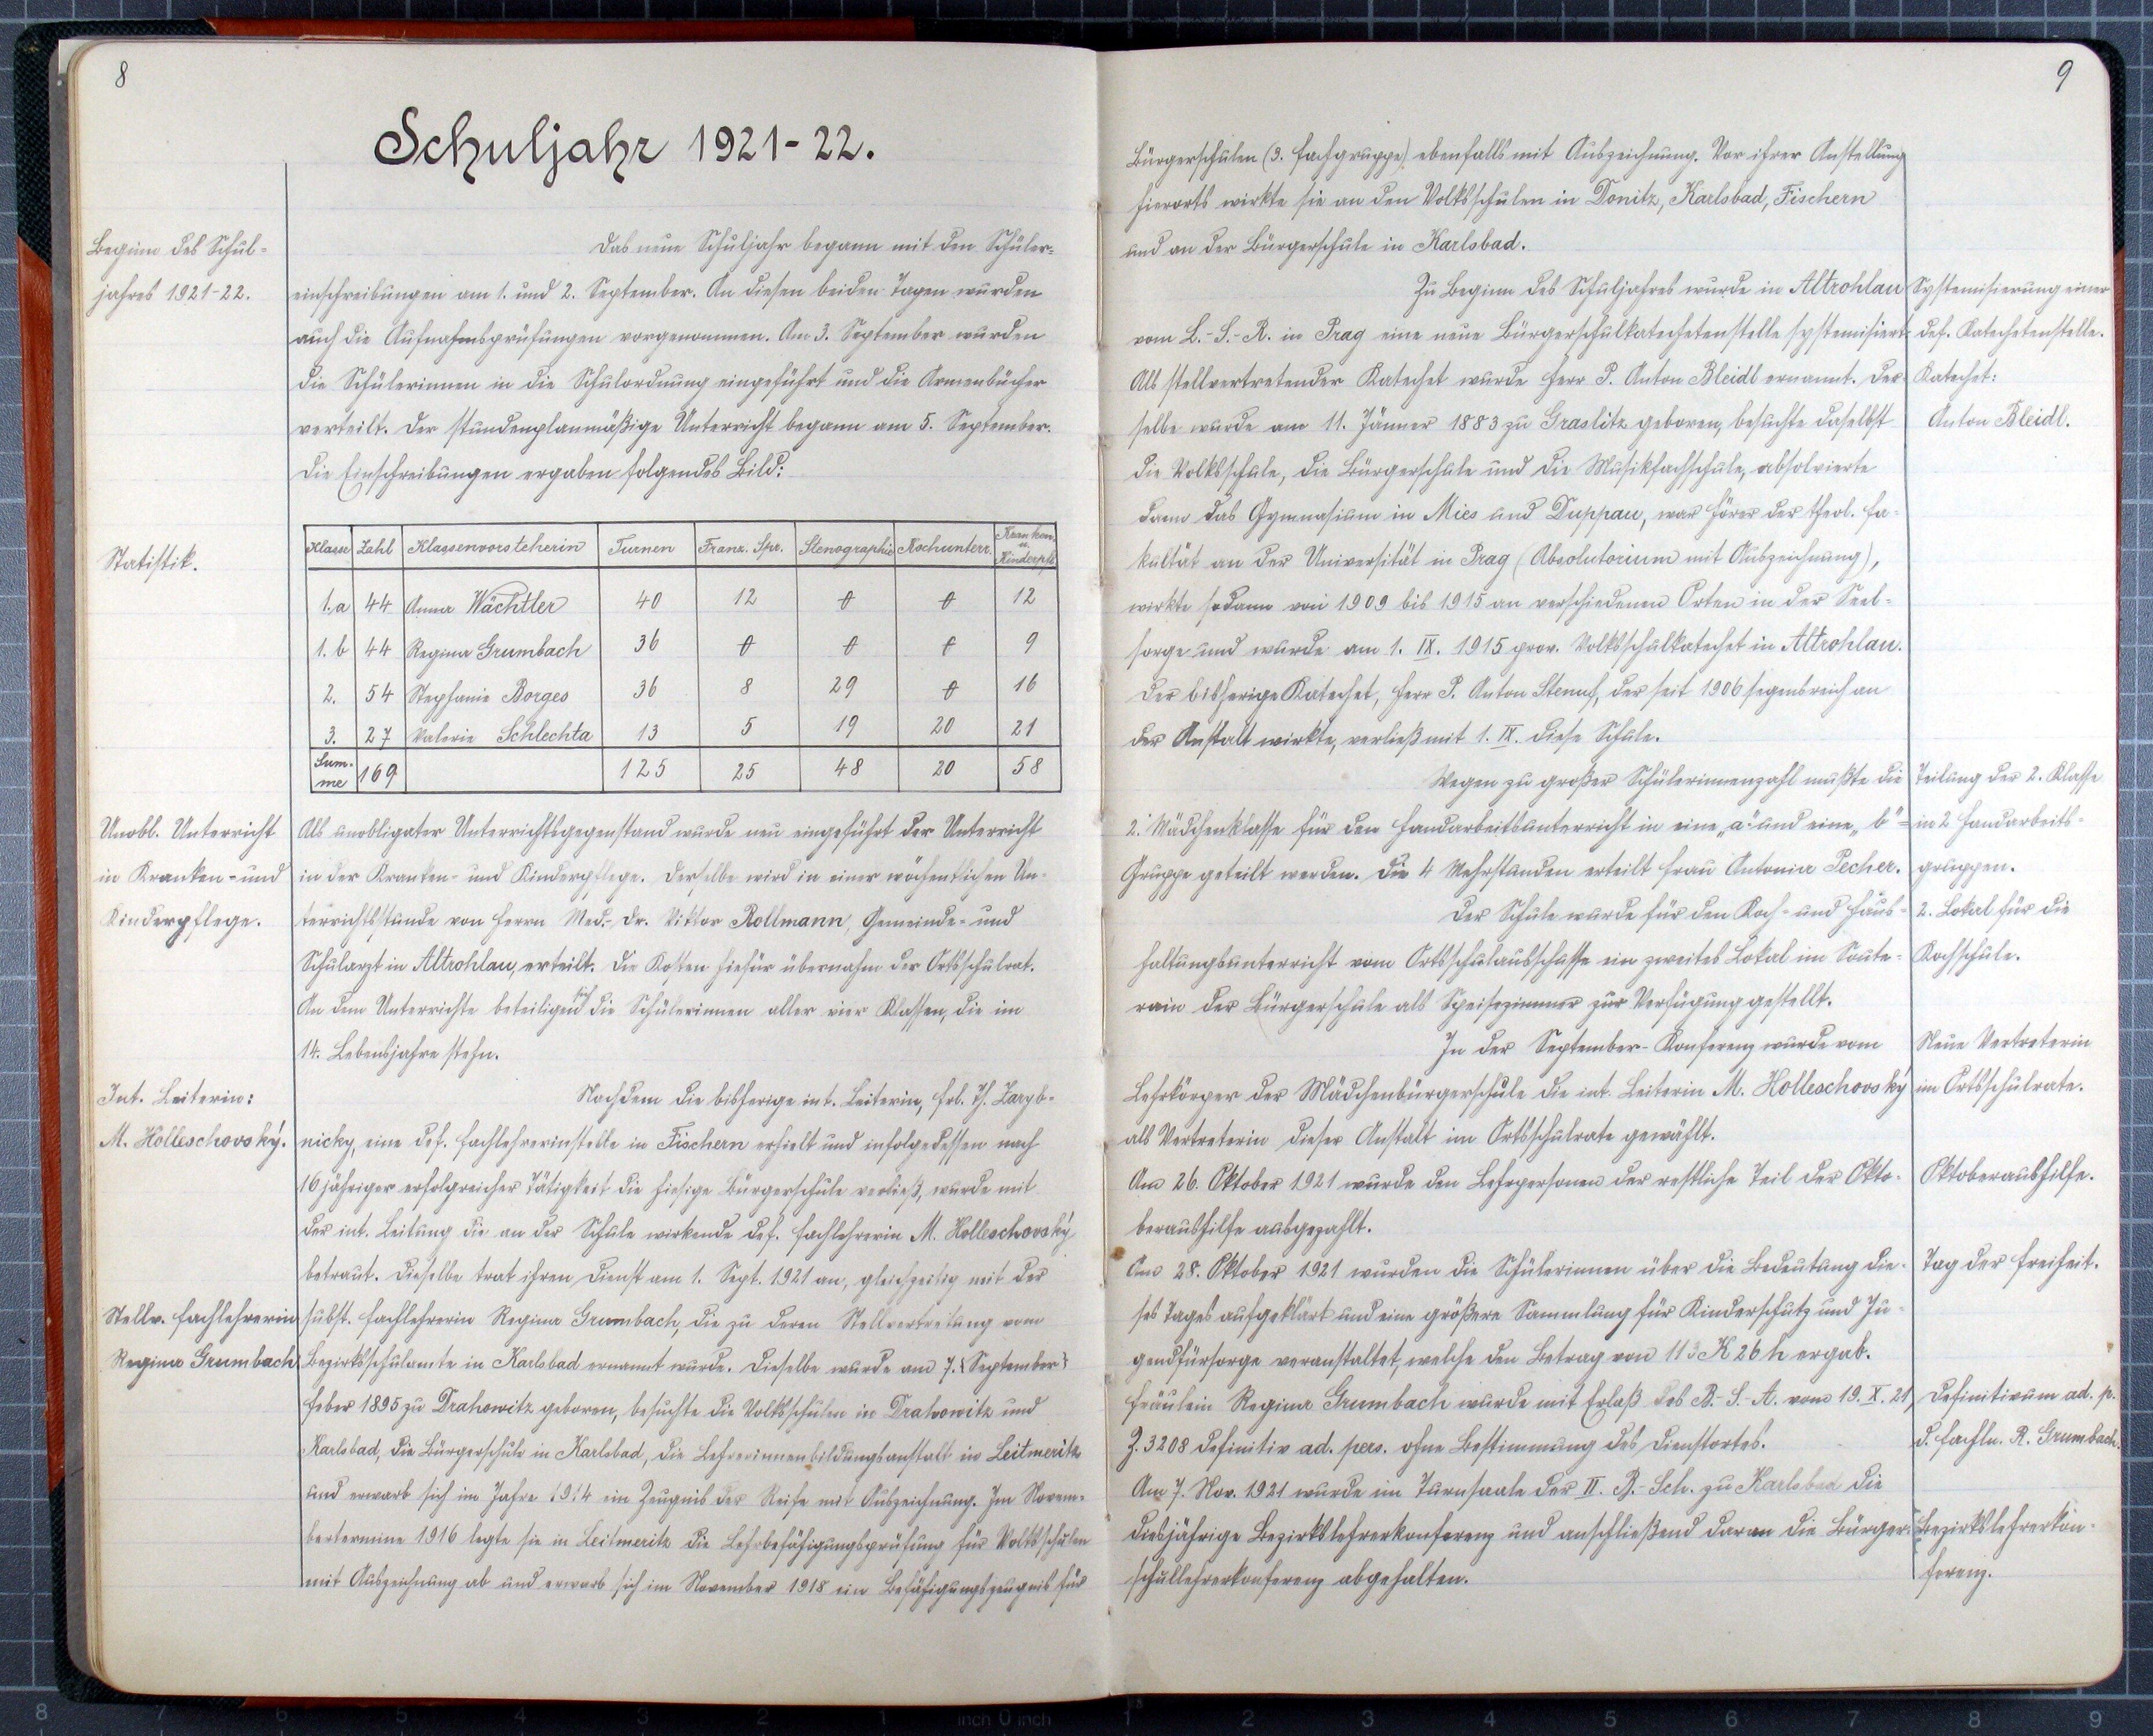 8
Schuljahr 1921-22.
Beginn des Schul=
jahres 1921-22.
Das neue Schuljahr begann mit den Schüler=
einschreibungen am 1. und 2. September. An diesen beiden Tagen wurden
auch die Aufnahmsprüfungen vorgenommen. Am 3. September wurden
die Schülerinnen in die Schulordnung eingeführt und die Armenbücher
verteilt. Der stundenplanmäßige Unterricht begann am 5. September.
Die Einschreibungen ergaben folgendes Bild:
Statistik.
Klasse Zahl Klassenvorsteherin Turnen Franz. Spr. Stenographie Kochunterr. Kranken u. Kinderpfl.
1.a 44 Anna Wächtler 40 12 0 0 12
1.b 44 Regina Grumbach 36 0 0 0 9
2. 54 Stephanie Borges 36 8 29 0 16
3. 27 Valerie Schlechta 13 5 19 20 21
Sum-me 169 125 25 48 20 58
Unobl. Unterricht
in Kranken- und
Kinderpflege.
Als unobligater Unterrichtsgegenstand wurde neu eingeführt der Unterricht
in der Kranken- und Kinderpflege. Derselbe wird in einer wöchentlichen Un-
terrichtsstunde von Herrn Med.-Dr. Viktor Rollmann, Gemeinde- und
Schularzt in Altrohlau, erteilt. Die Kosten hiefür übernahm der Ortsschulrat.
An dem Unterrichte beteiligen sich die Schülerinnen aller vier Klassen, die im
14. Lebensjahre stehn.
Int. Leiterin:
M. Holleschovský.
Nachdem die bisherige int. Leiterin, Frl. Th. Zaryb-
nicky, eine def. Fachlehrerinstelle in Fischern erhielt und infolgedessen nach
16 jähriger erfolgreicher Tätigkeit die hiesige Bürgerschule verließ, wurde mit
der int. Leitung die an der Schule wirkende def. Fachlehrerin M. Holleschovský
betraut. Dieselbe trat ihren Dienst am 1. Sept. 1921 an, gleichzeitig mit der
Stellv. Fachlehrerin
Regina Grumbach
subst. Fachlehrerin Regina Grumbach, die zu deren Stellvertretung vom
Bezirksschulamte in Karlsbad ernannt wurde. Dieselbe wurde am 7. {September}
Feber 1895 zu Drahowitz geboren, besuchte die Volksschulen in Drahowitz und
Karlsbad, die Bürgerschule in Karlsbad, die Lehrerinnenbildungsanstalt in Leitmeritz
und erwarb sich im Jahre 1914 ein Zeugnis der Reife mit Auszeichnung. Im Novem-
bertermine 1916 legte sie in Leitmeritz die Lehrbefähigungsprüfung für Volksschulen
mit Auszeichnung ab und erwarb sich im November 1918 ein Befähigungszeugnis für
9
Bürgerschulen (3. Fachgruppe) ebenfalls mit Auszeichnung. Vor ihrer Anstellung
hierorts wirkte sie an den Volksschulen in Donitz, Karlsbad, Fischern
und an der Bürgerschule in Karlsbad.
Zu Beginn des Schuljahres wurde in Altrohlau
vom L.-S.-R. in Prag eine neue Bürgerschulkatechetenstelle systemisiert.
Als stellvertretender Katechet wurde Herr P. Anton Bleidl ernannt. Der
selbe wurde am 11. Jänner 1883 zu Graslitz geboren, besuchte daselbst
die Volksschule, die Bürgerschule und die Musikfachschule, absolvierte
dann das Gymnasium in Mies und Duppau, war Hörer der theol. Fa-
kultät an der Universität in Prag (Absolutorium mit Auszeichnung),
wirkte sodann von 1909 bis 1915 an verschiedenen Orten in der Seel-
sorge und wurde am 1. IX. 1915 prov. Volksschulkatechet in Altrohlau.
Der bisherige Katechet, Herr P. Anton Stenuf, der seit 1906 segensreich an
der Anstalt wirkte, verließ mit 1. IX. diese Schule.
Systemisierung einer
def. Katechetenstelle.
Katechet:
Anton Bleidl.
Wegen zu großer Schülerinnenzahl mußte die
2. Mädchenklasse für den Handarbeitsunterricht in eine „a" und eine „b"=
Gruppe geteilt werden. Die 4 Mehrstunden erteilt Frau Antonia Pecher.
Teilung der 2. Klasse
in 2 Handarbeits-
gruppen.
Der Schule wurde für den Koch- und Haus-
haltungsunterricht vom Ortsschulausschusse ein zweites Lokal im Soute-
rain der Bürgerschule als Speisezimmer zur Verfügung gestellt.
2. Lokal für die
Kochschule.
In der September-Konferenz wurde vom
Lehrkörper der Mädchenbürgerschule die int. Leiterin M. Holleschovský
als Vertreterin dieser Anstalt im Ortsschulrate gewählt.
Neue Vertreterin
im Ortsschulrate.
Am 26. Oktober 1921 wurde den Lehrpersonen der restliche Teil der Okto-
beraushilfe ausgezahlt.
Oktoberaushilfe.
Am 28. Oktober 1921 wurden die Schülerinnen über die Bedeutung die-
ses Tages aufgeklärt und eine größere Sammlung für Kinderschutz und Ju-
gendfürsorge veranstaltet, welche den Betrag von 113 K 26 h ergab.
Tag der Freiheit.
Fräulein Regina Grumbach wurde mit Erlaß des B.-S.-A. vom 19. X. 21,
Z. 3208 definitiv ad. pers. ohne Bestimmung des Dienstortes.
Definitivum ad. p.
d. Fachln. R. Grumbach.
Am 7. Nov. 1921 wurde im Turnsaale der II. B.-Sch. zu Karlsbad die
diesjährige Bezirkslehrerkonferenz und anschließend daran die Bürger-
schullehrerkonferenz abgehalten.
Bezirkslehrerkon-
ferenz.
8 7 6 5 4 3 2 1 inch 0 inch 1 2 3 4 5 6 7 8 9